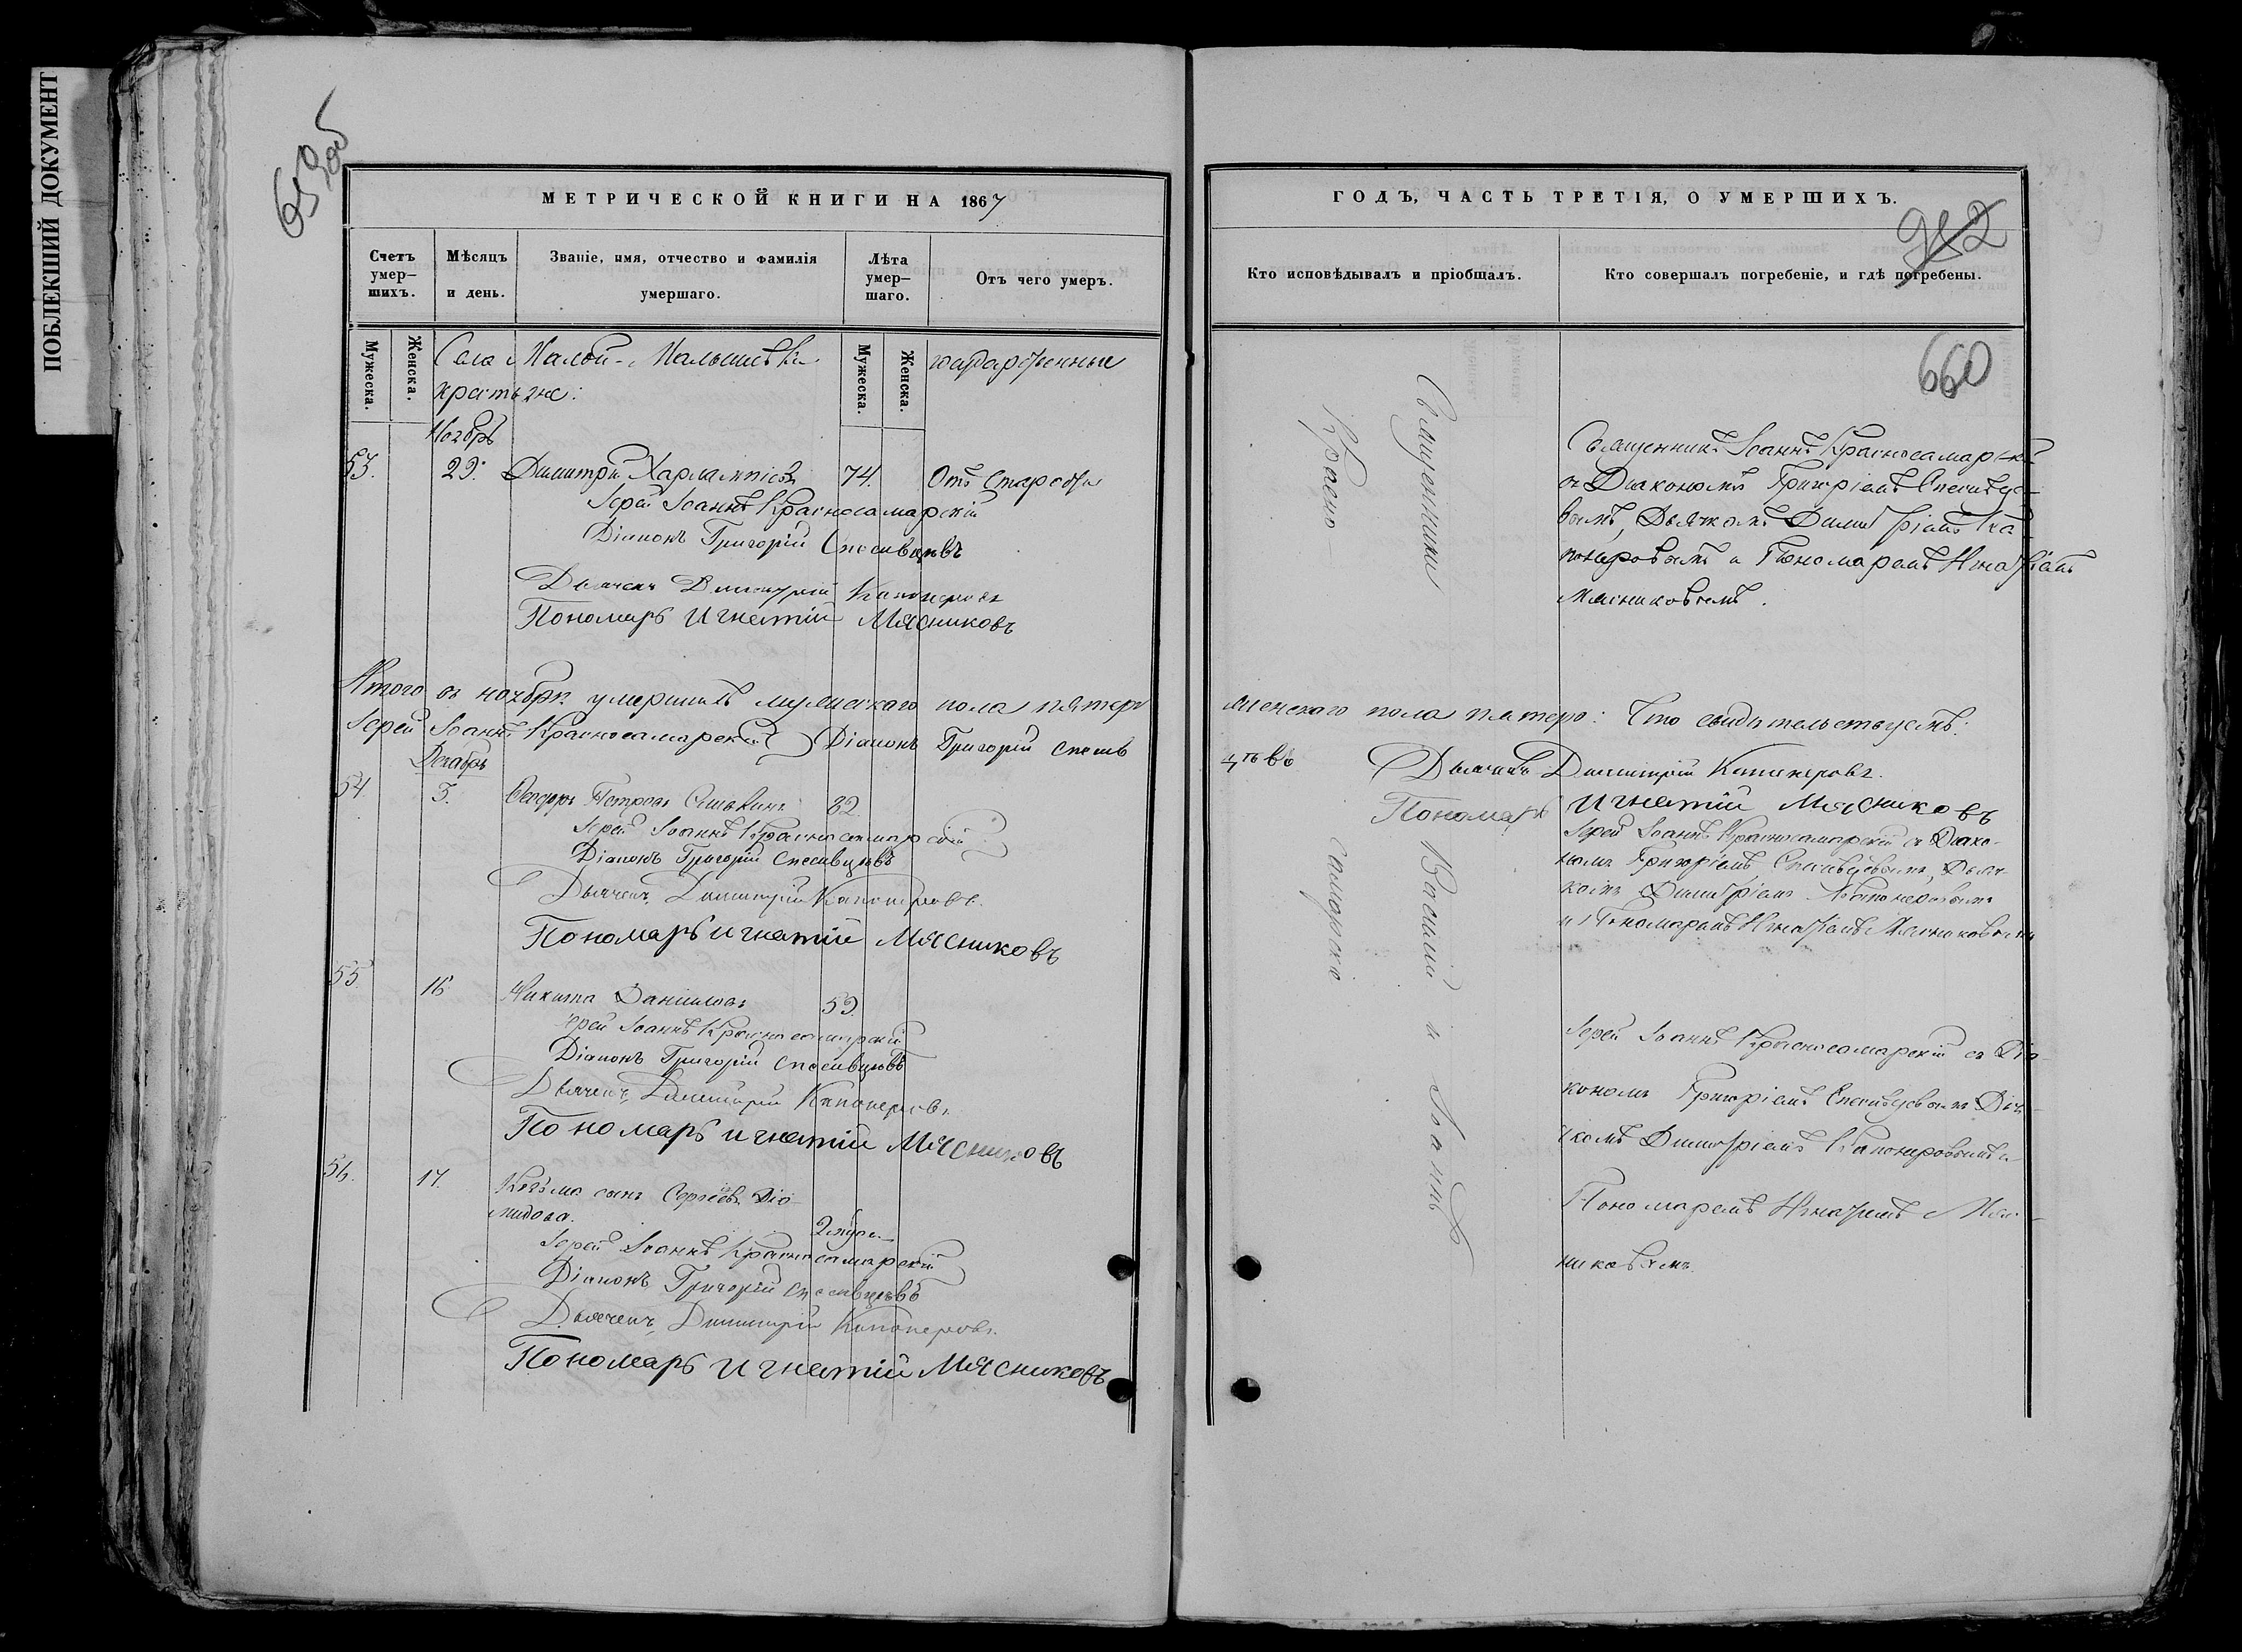 ПОБЛЕКШИЙ ДОКУМЕНТ
659 об
МЕТРИЧЕСКОЙ КНИГИ НА 1867
Счетъ умер-шихъ.
Мѣсяцъ и день.
Званіе, имя, отчество и фамилія умершаго.
Лѣта умер-шаго.
Отъ чего умеръ.
Мужеска.
Женска.
Мужеска.
Женска.
Села Малой-Малышевки
крестьяне:
Ноябрь
53. 29. Димитрій Харлампіевъ 74. Отъ Старости
Іерей Іоаннъ Красносамарскій
Діаконъ Григорій Спесивцовъ
Дьячекъ Димитрій Капонеровъ
Пономарь Игнатій Мясниковъ
Итого въ ноябрѣ умершихъ мужескаго пола пятеро
Іерей Іоаннъ Красносамарскій Діаконъ Григорій Спесив
Декабрь
54. 3. Ѳеодоръ Петровъ 82
Іерей Іоаннъ Красносамарскій
Діаконъ Григорій Спесивцовъ
Дьячекъ Димитрій Капонеровъ
Пономарь Игнатій Мясниковъ
55. 16. Никита Даниловъ 59.
Іерей Іоаннъ Красносамарскій
Діаконъ Григорій Спесивцовъ
Дьячекъ Димитрій Капонеровъ
Пономарь Игнатій Мясниковъ
56. 17. Козьма сынъ Сергѣя Діо-
мидова.
Іерей Іоаннъ Красносамарскій
Діаконъ Григорій Спесивцовъ
Дьячекъ Димитрій Капонеровъ
Пономарь Игнатій Мясниковъ
ГОДЪ, ЧАСТЬ ТРЕТІЯ, О УМЕРШИХЪ.
942
Кто исповѣдывалъ и пріобщалъ.
Кто совершалъ погребеніе, и гдѣ погребены.
660
Священники Василій и Іоаннъ
Красно самарскіе
Священникъ Іоаннъ Красносамарскій
съ Діакономъ Григоріемъ Спесивцо-
вымъ, Дьячкомъ Димитріемъ Ка
понеровымъ и Пономаремъ Игнатіемъ
Мясниковымъ.
женскаго пола пятеро: Что свидѣтельствуемъ:
цовъ
Дьячекъ Димитрій Капонеровъ.
Пономарь Игнатій Мясниковъ
Іерей Іоаннъ Красносамарскій съ Діако-
номъ Григоріемъ Спесивцовымъ, Дьяч-
комъ Димитріемъ Капонеровымъ
и Пономаремъ Игнатіемъ Мясниковымъ
Іерей Іоаннъ Красносамарскій съ Діа-
кономъ Григоріемъ Спесивцовымъ Дья-
чкомъ Димитріемъ Капонеровымъ и
Пономаремъ Игнатіемъ Мяс-
никовымъ